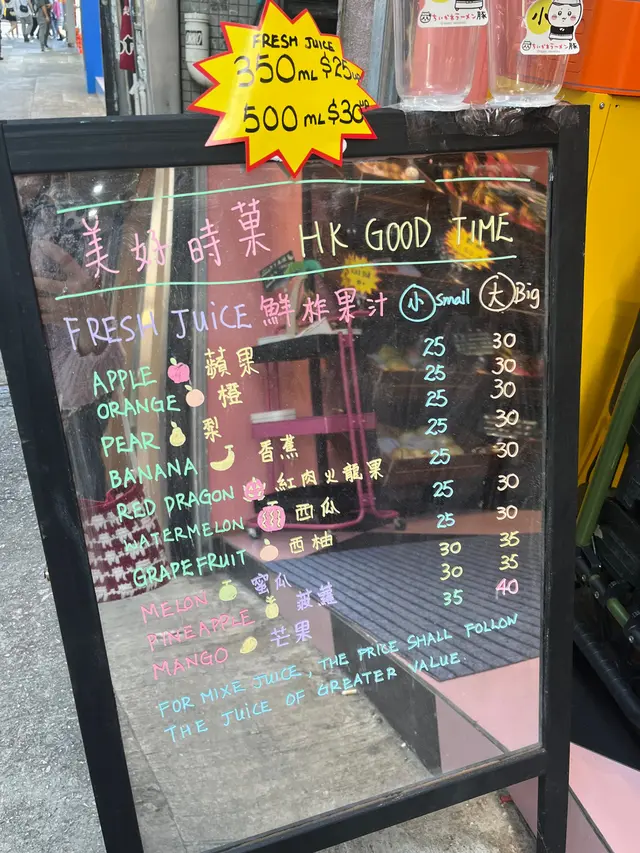 FRESH JUICE
350ML $25up
500ML $30up
ちいかわラーメン豚
小
美好時菓 HK GOOD TIME
FRESH JUICE 鮮柞果汁 小 Small 大 Big
APPLE 蘋果 25 30
ORANGE 橙 25 30
PEAR 梨 25 30
BANANA 香蕉 25 30
RED DRAGON 紅肉火龍果 25 30
WATERMELON 西瓜 25 30
GRAPEFRUIT 西柚 25 30
MELON 蜜瓜 30 35
PINEAPPLE 菠蘿 30 35
MANGO 芒果 35 40
FOR MIXE JUICE, THE PRICE SHALL FOLLOW
THE JUICE OF GREATER VALUE.